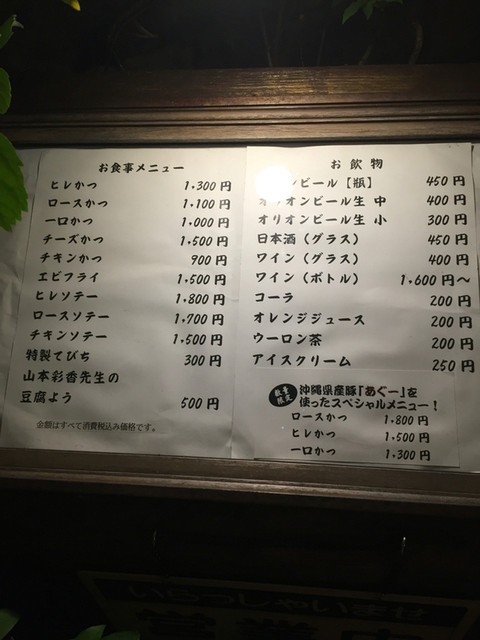 お食事メニュー
ヒレかつ 1,300円
ロースかつ 1,100円
一口かつ 1,000円
チーズかつ 1,500円
チキンかつ 900円
エビフライ 1,500円
ヒレソテー 1,800円
ロースソテー 1,700円
チキンソテー 1,500円
特製てびち 300円
山本彩香先生の
豆腐よう 500円
金額はすべて消費税込み価格です。
お飲物
ンビール【瓶】 450円
オリオンビール生 中 400円
オリオンビール生 小 300円
日本酒(グラス) 450円
ワイン(グラス) 400円
ワイン(ボトル) 1,600円〜
コーラ 200円
オレンジジュース 200円
ウーロン茶 200円
アイスクリーム 250円
数量限定
沖縄県産豚「あぐー」を
使ったスペシャルメニュー!
ロースかつ 1,800円
ヒレかつ 1,500円
一口かつ 1,300円
いらっしゃいませ